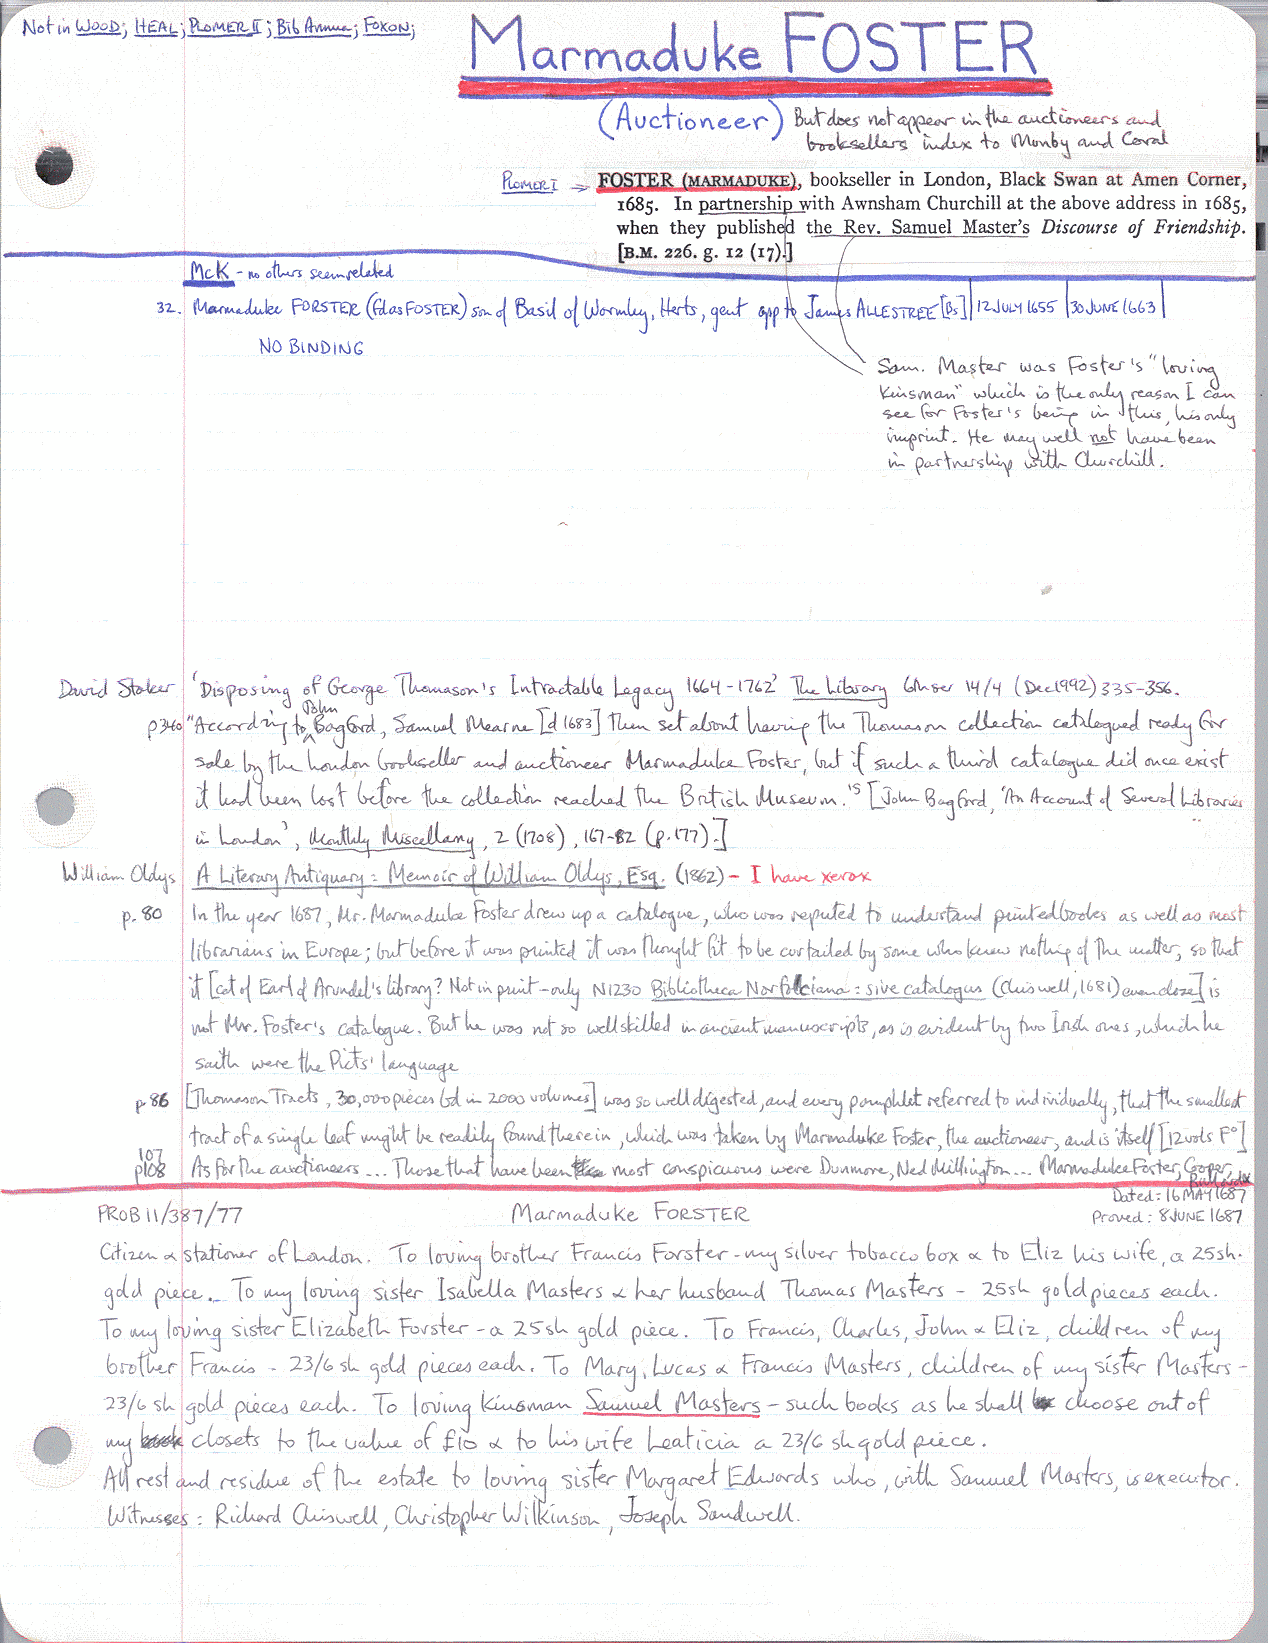 Not in WOOD; HEAL; PLOMER II; Bib Annua; FOXON;
Marmaduke FOSTER
(Auctioneer) But does not appear in the auctioneers and
booksellers index to Munby and Coral
PLOMER I → FOSTER (MARMADUKE), bookseller in London, Black Swan at Amen Corner,
1685. In partnership with Awnsham Churchill at the above address in 1685,
when they published the Rev. Samuel Master's Discourse of Friendship.
[B.M. 226. g. 12 (17).]
McK - no others seem related
32. Marmaduke FORSTER (Fdas FOSTER) son of Basil of Wormley, Herts, gent app to James ALLESTREE [Bs] | 12 JULY 1655 | 30 JUNE 1663 |
NO BINDING
Sam. Master was Foster's "loving
kinsman" which is the only reason I can
see for Foster's being in this, his only
imprint. He may well not have been
in partnership with Churchill.
David Stoker 'Disposing of George Thomason's Intractable Legacy 1664-1762' The Library 6th ser 14/4 (Dec 1992) 335-356.
p340 "According to John Bagford, Samuel Mearne [d 1683] then set about having the Thomason collection catalogued ready for
sale by the London bookseller and auctioneer Marmaduke Foster, but if such a third catalogue did once exist
it had been lost before the collection reached the British Museum.'5 [John Bagford, 'An Account of Several Libraries
in London', Monthly Miscellany, 2 (1708), 167-82 (p.177).]
William Oldys A Literary Antiquary: Memoir of William Oldys, Esq. (1862) - I have xerox
p. 80 In the year 1687, Mr. Marmaduke Foster drew up a catalogue, who was reputed to understand printed books as well as most
librarians in Europe; but before it was printed it was thought fit to be curtailed by some who knew nothing of the matter, so that
it [cat of Earl of Arundel's library? Not in print - only N1230 Bibliotheca Norfolciana: sive catalogus (Chiswell, 1681) even close] is
not Mr. Foster's catalogue. But he was not so well skilled in ancient manuscripts, as is evident by two Irish ones, which he
saith were the Picts' language
p86 [Thomason Tracts, 30,000 pieces bd in 2000 volumes] was so well digested, and every pamphlet referred to individually, that the smallest
tract of a single leaf might be readily found therein, which was taken by Marmaduke Foster, the auctioneer, and is itself [12 vols Fº]
107
p108 As for the auctioneers ... Those that have been most conspicuous were Dunmore, Ned Millington ... Marmaduke Foster, Cooper,
Dated: 16 MAY 1687
PROB 11/387/77 Marmaduke FORSTER Proved: 8 JUNE 1687
Citizen & stationer of London. To loving brother Francis Forster - my silver tobacco box & to Eliz his wife, a 25sh.
gold piece. To my loving sister Isabella Masters & her husband Thomas Masters - 25sh gold pieces each.
To my loving sister Elizabeth Forster - a 25sh gold piece. To Francis, Charles, John & Eliz, children of my
brother Francis - 23/6 sh gold pieces each. To Mary, Lucas & Francis Masters, children of my sister Masters -
23/6 sh gold pieces each. To loving kinsman Samuel Masters - such books as he shall choose out of
my closets to the value of £10 & to his wife Leaticia a 23/6 sh gold piece.
All rest and residue of the estate to loving sister Margaret Edwards who, with Samuel Masters, is executor.
Witnesses: Richard Chiswell, Christopher Wilkinson, Joseph Sandwell.